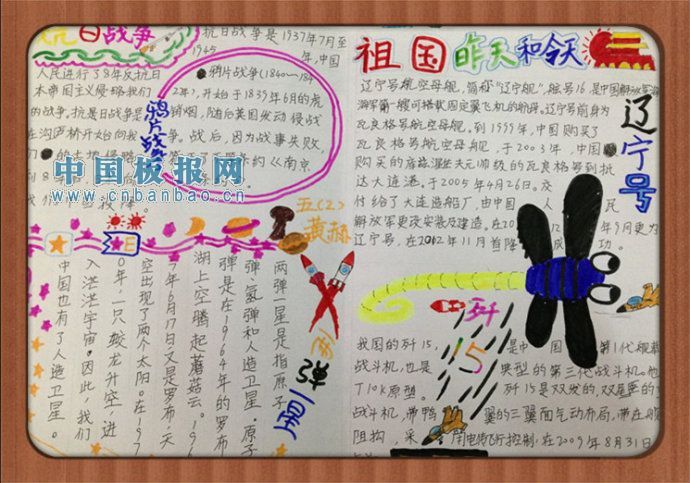 抗日战争
抗日战争是1937年7月至
1945年,中国
人民进行了8年反抗日
本帝国主义侵略我们
的战争。抗日战争是
在卢沟桥开始向我
鸦片战争
鸦片战争(1840~184
2年),开始于1839年6月的虎
销烟,随后英国发动侵战
争。战后,因为战事失败,
约《南京
中国板报网
www.cnbanbao.cn
五(2)
黄赫
两弹一星
两弹一星是指原子
弹、氢弹和人造卫星。原子
弹是在1964年的罗布
湖上空腾起蘑菇云。196
7年6月17日又是罗布,天
空出现了两个太阳。在197
0年,一只蛟龙升空,进
入茫茫宇宙。因此,我们
中国也有了人造卫星。
祖国昨天和今天
辽宁号
辽宁号航空母舰,简称“辽宁舰”,舷号16,是中国解放军海
海军第一艘可搭载固定翼飞机的航母。辽宁号前身为
瓦良格号航空母舰。到1999年,中国购买了
瓦良格号航空母舰,于2003年,中国
购买的
瓦良格号到抵
达大连港。于2005年4月26日。交
付给了大连造船厂,由中国人民
解放军更改安装及建造。在20
年9月更为
辽宁号,在2012年11月首降成功。
歼15
我国的歼15,是中国第1代舰载
战斗机,也是典型的第三代战斗机。他
T10K原型。歼15是双发的,双垂尾的
战斗机,带鸭翼的三翼面气动布局,带在
阻构,采用电传飞行控制,在2009年8月31日